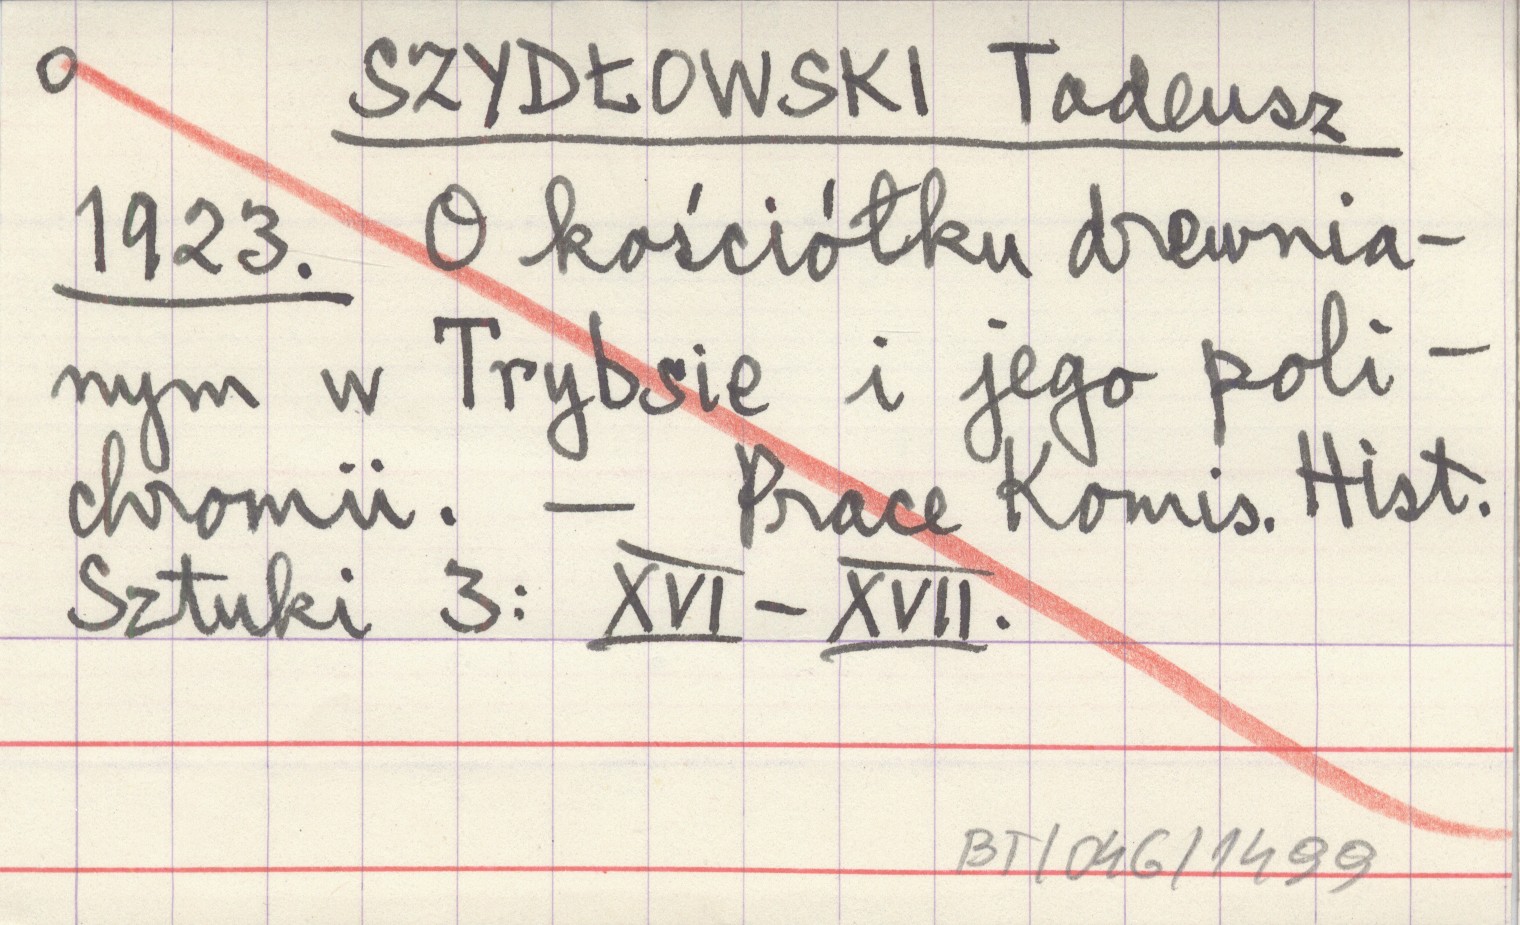 SZYDŁOWSKI Tadeusz
1923. O kościółku drewnia-
nym w Trybsie i jego poli-
chromii. — Prace Komis. Hist.
Sztuki 3: XVI – XVII.
BT/046/1499